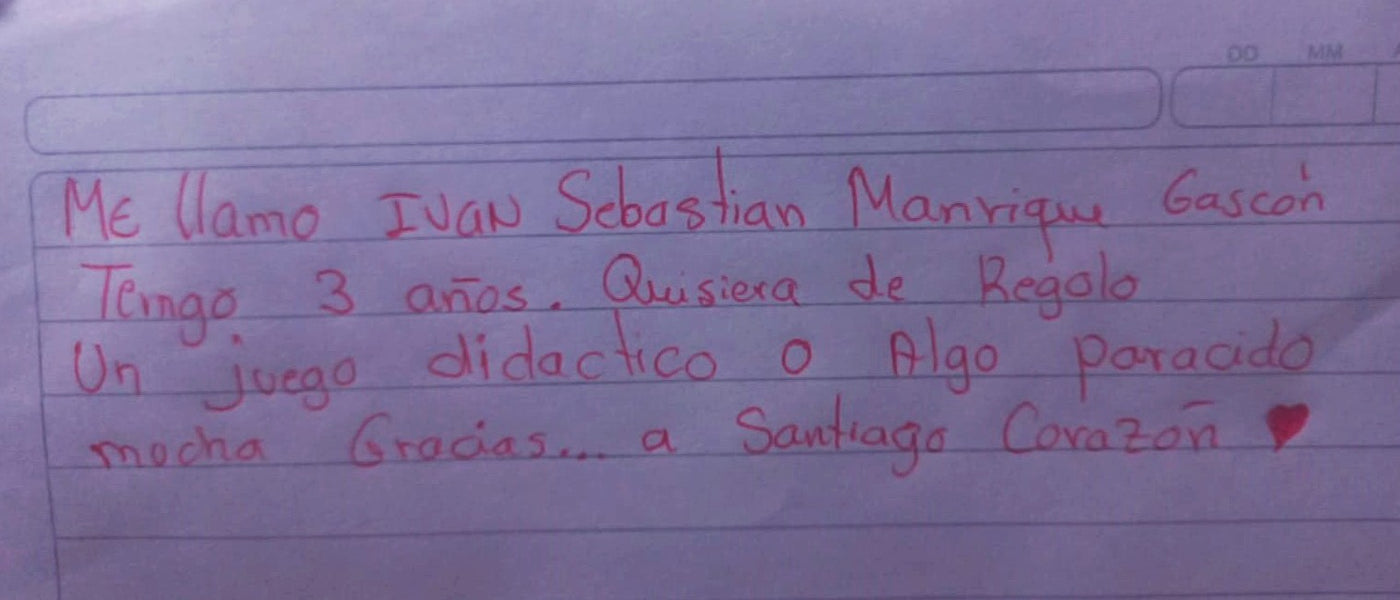 DD MM
Me llamo IVAN Sebastian Manrique Gascón
Temgo 3 años. Quisiera de Regalo
Un juego didactico o Algo paracido
mocha Gracias... a Santiago Corazoñ ♥